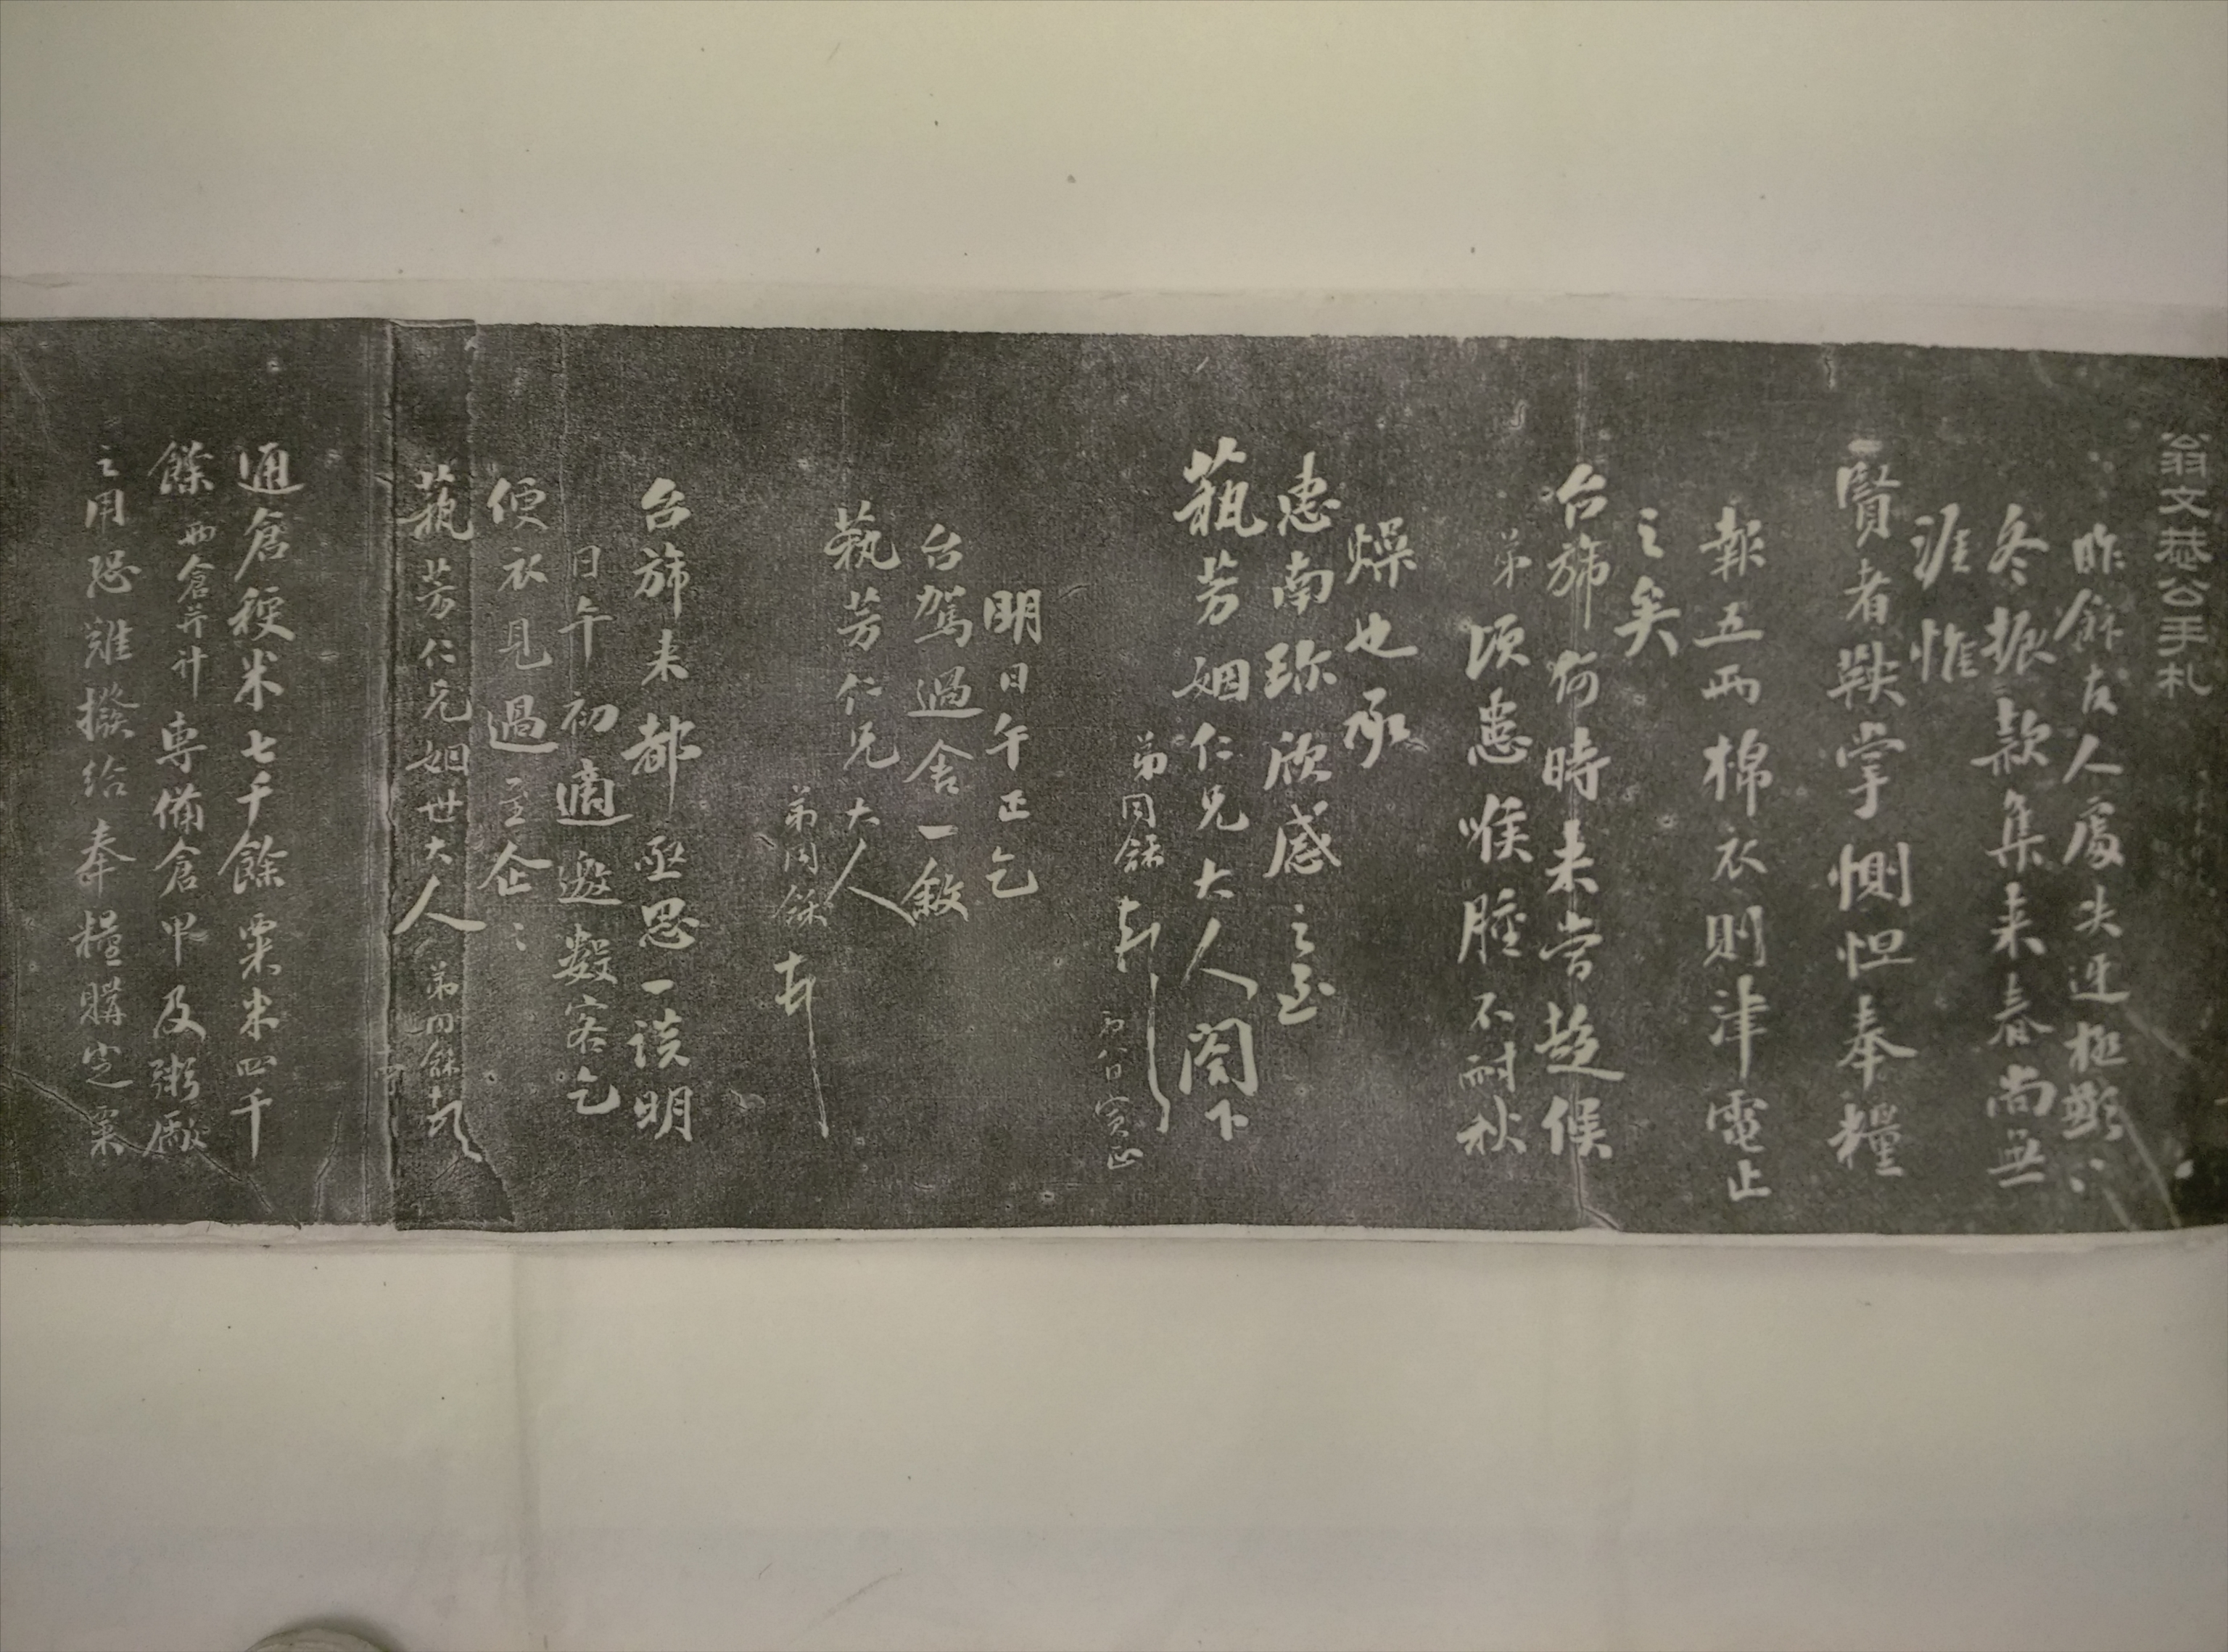 翁文恭公手札
昨餘友人處失迓極歉〻
冬振款集来春尚無
涯惟
賢者鞅掌惻怛奉糧
報五兩棉衣則津電止
之矣
台旆何時来當趨候
弟頃患喉腫不耐秋
燥也承
惠南珎欣感之至
蓺芳姻仁兄大人閣下
弟同龢頓
初八日寅正
明日午正乞
台駕過舍一敘
蓺芳仁兄大人
弟同龢頓
台旆来都亟思一談明
日午初適邀數客乞
便衣見過至企〻
蓺芳仁兄姻世大人 弟同龢頓
通倉稉米七千餘粟米四千
餘兩倉并计專備倉甲及粥廠
之用恐難撥给奉糧購定粟